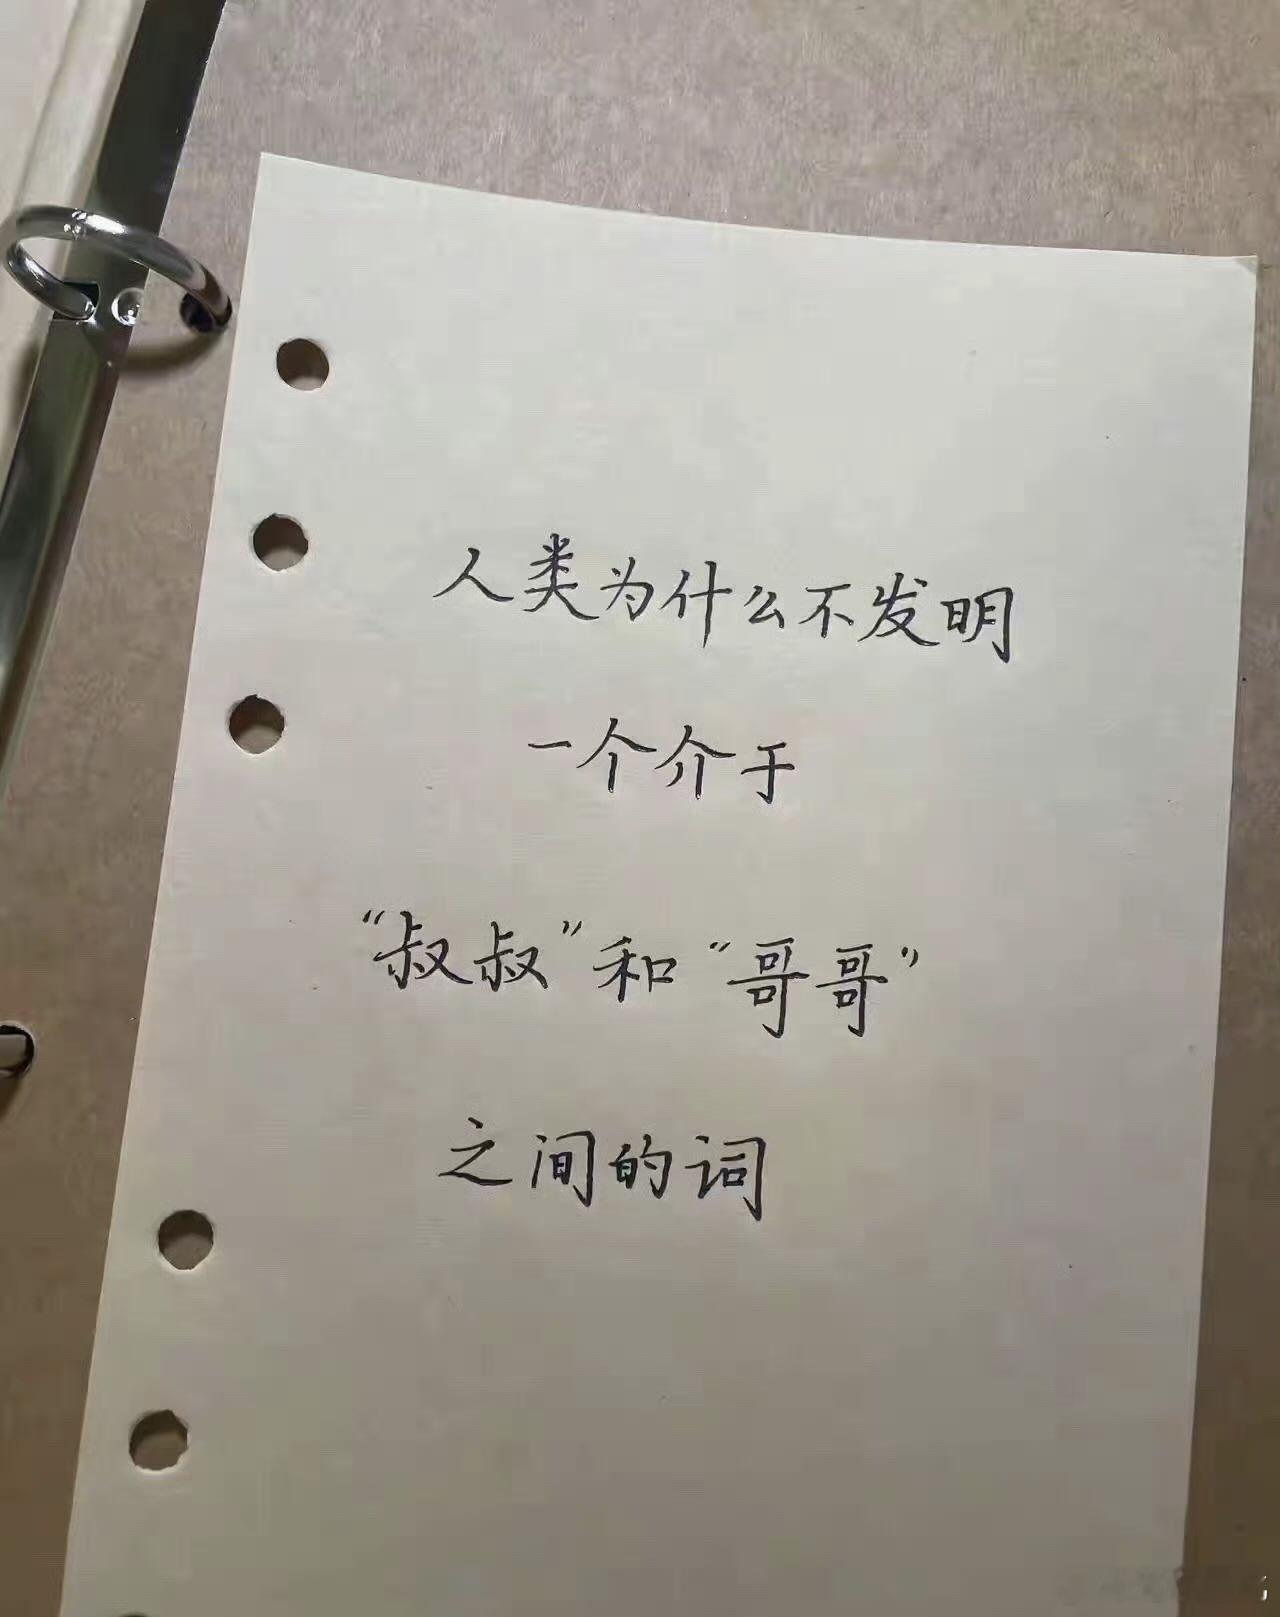 人类为什么不发明
一个介于
“叔叔”和“哥哥”
之间的词